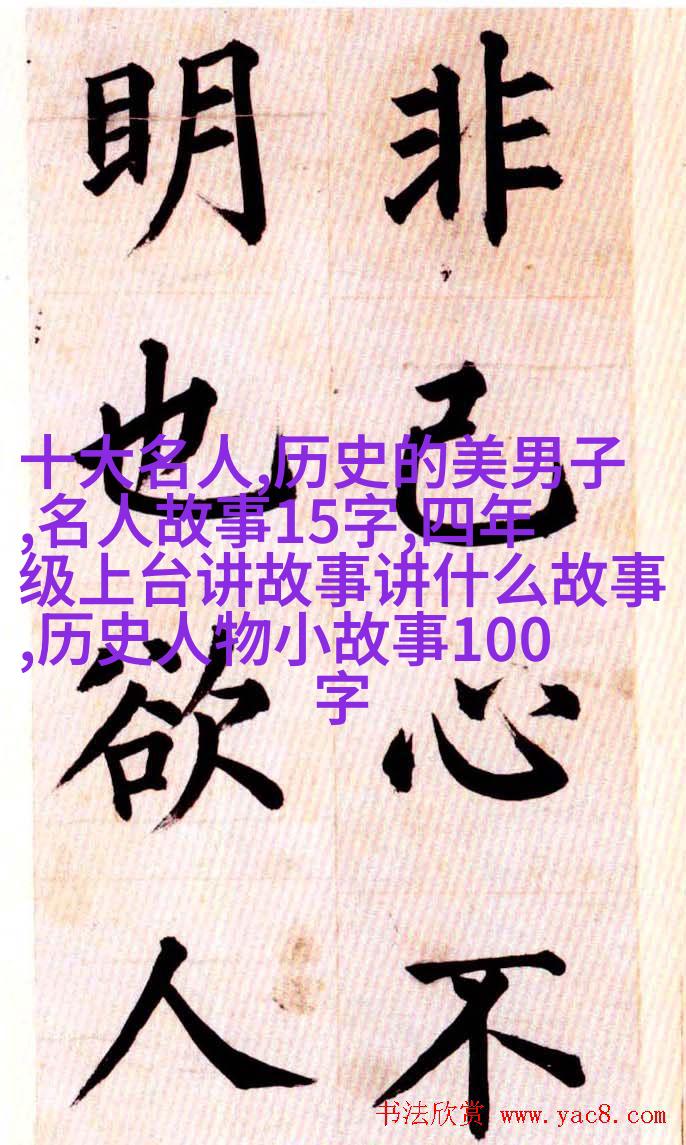 非己心不
明也欲人
十大名人,历史的美男子
,名人故事15字,四年
级上台讲故事讲什么故事
,历史人物小故事100
字
书法欣赏 www.yac8.com